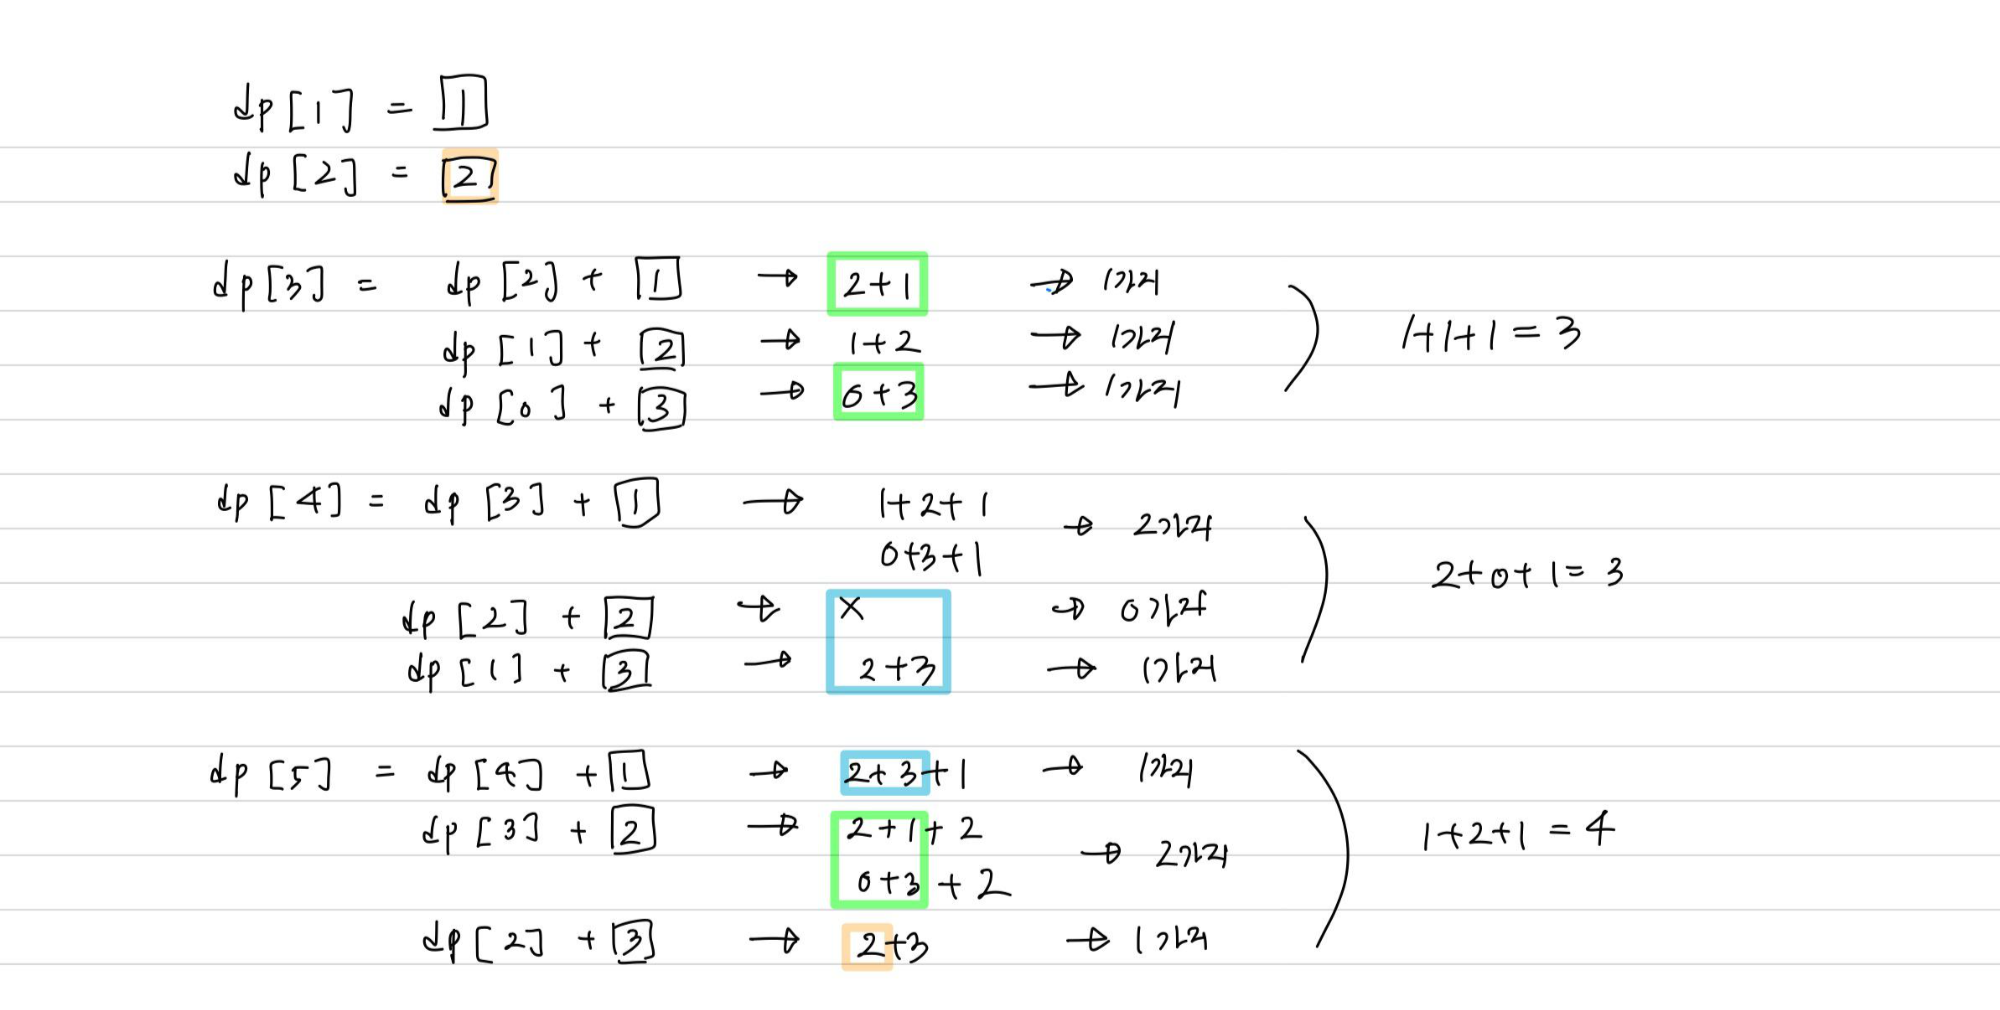 dp [1] = 1
dp [2] = 2
dp [3] = dp [2] + 1 → 2+1 → 1가지
dp [1] + 2 → 1+2 → 1가지
1+1+1 = 3
dp [0] + 3 → 0+3 → 1가지
dp [4] = dp [3] + 1 → 1+2+1
→ 2가지
0+3+1
2+0+1= 3
dp [2] + 2 → × → 0가지
dp [1] + 3 → 2+3 → 1가지
dp [5] = dp [4] + 1 → 2+3+1 → 1가지
dp [3] + 2 → 2+1+2
→ 2가지
1+2+1 = 4
0+3+2
dp [2] + 3 → 2+3 → 1가지